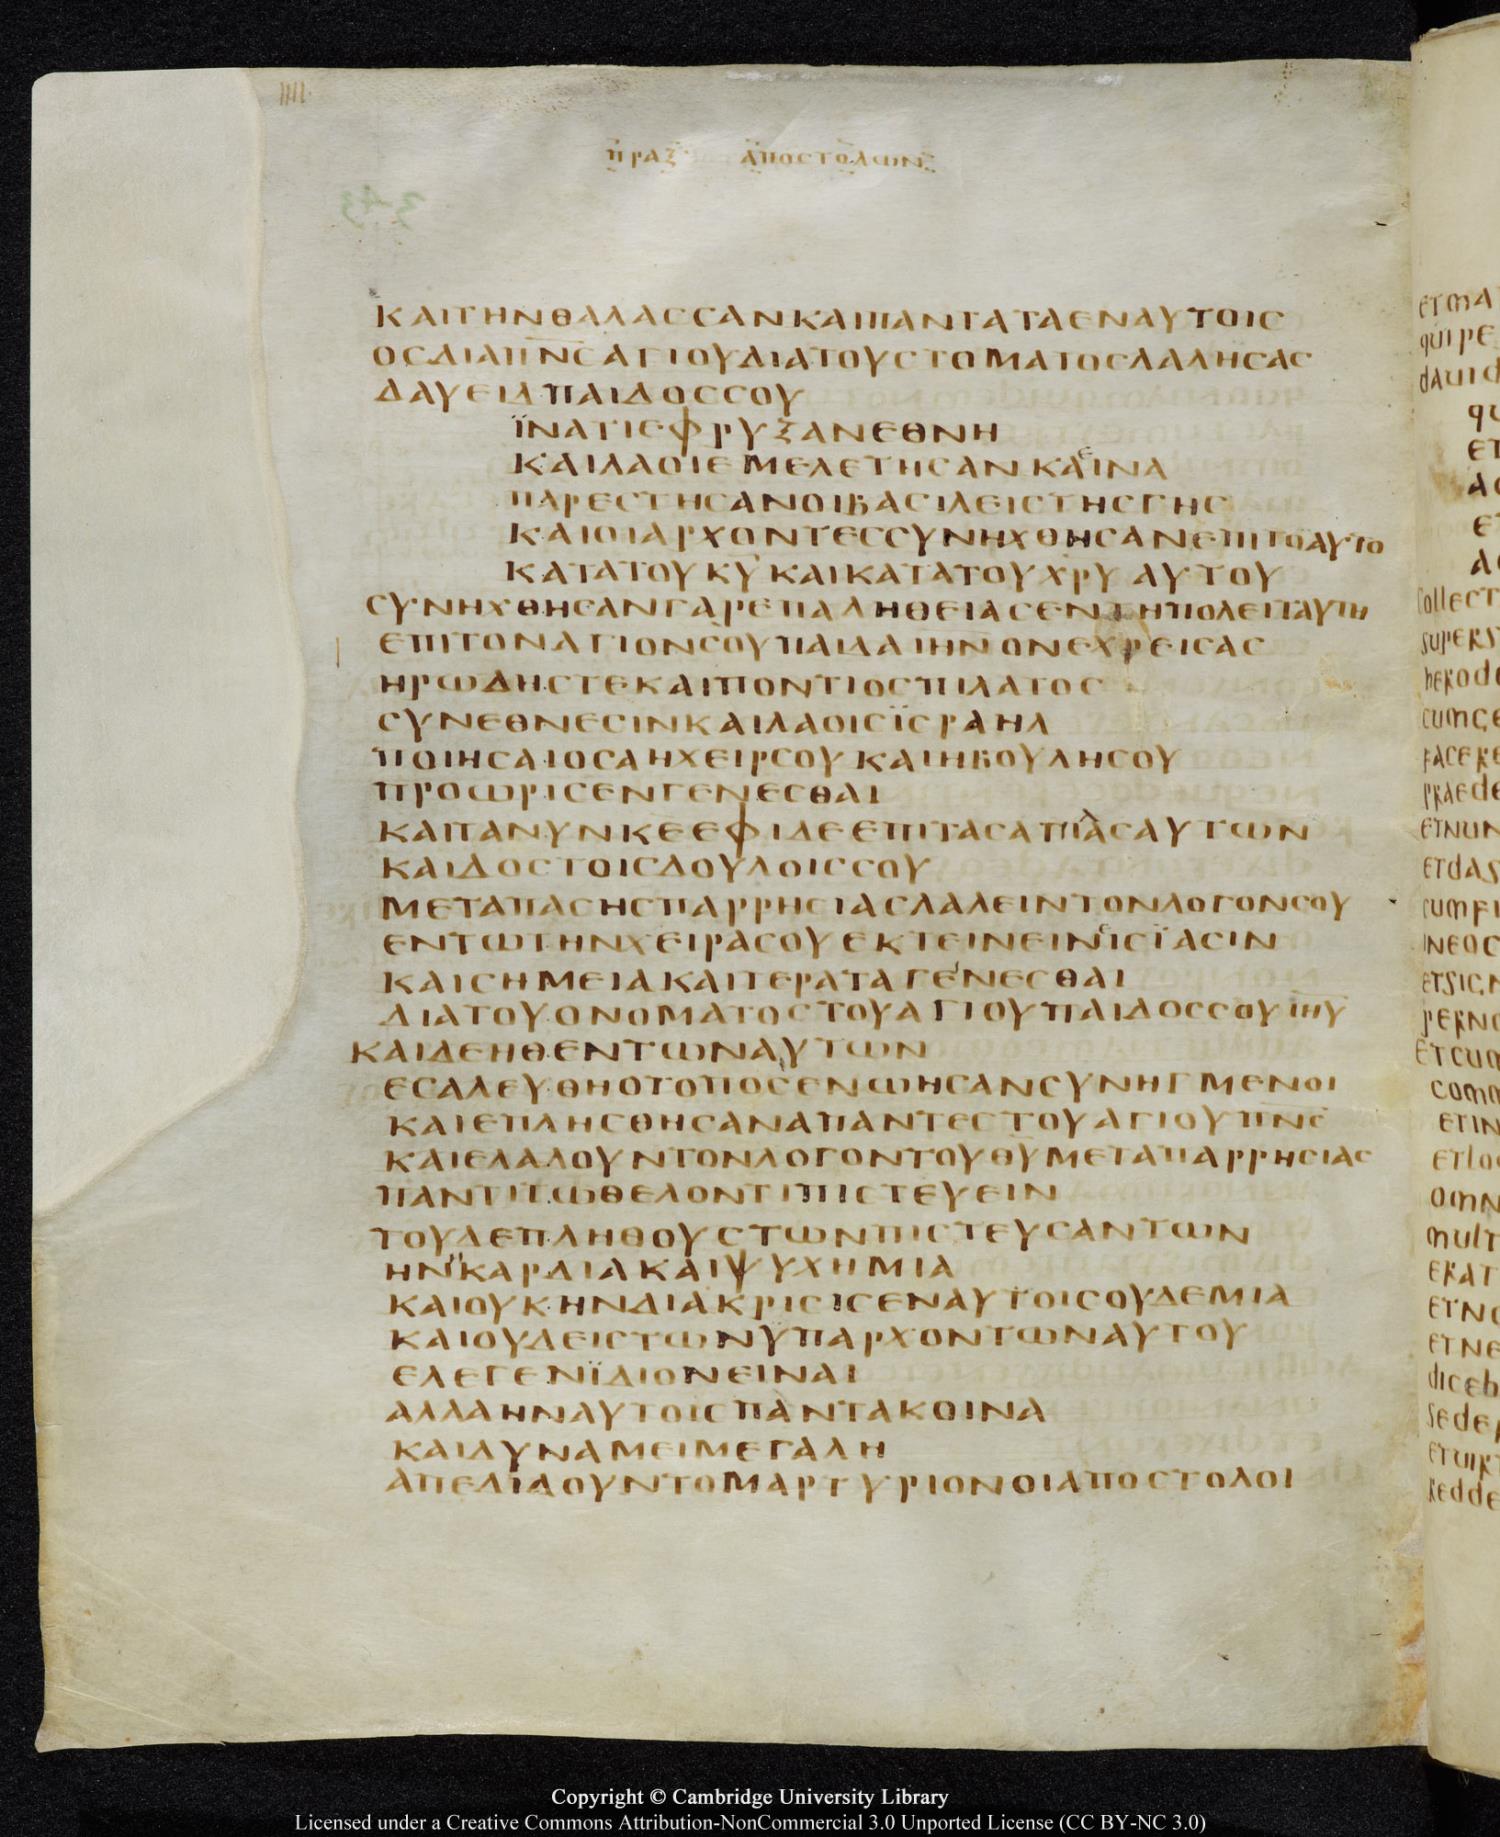 ΠΡΑΞ ΑΠΟΣΤΟΛΩΝ
ΚΑΙΤΗΝΘΑΛΑϹϹΑΝΚΑΙΠΑΝΤΑΤΑΕΝΑΥΤΟΙϹ
ΟϹΔΙΑΠΝϹΑΓΙΟΥΔΙΑΤΟΥϹΤΟΜΑΤΟϹΛΑΛΗϹΑϹ
ΔΑΥΕΙΔΠΑΙΔΟϹϹΟΥ
ΪΝΑΤΙΕΦΡΥΞΑΝΕΘΝΗ
ΚΑΙΛΑΟΙΕΜΕΛΕΤΗϹΑΝΚΑΕΙΝΑ
ΠΑΡΕϹΤΗϹΑΝΟΙΒΑϹΙΛΕΙϹΤΗϹΓΗϹ
ΚΑΙΟΙΑΡΧΟΝΤΕϹϹΥΝΗΧΘΗϹΑΝΕΠΙΤΟΑΥΤΟ
ΚΑΤΑΤΟΥΚΥΚΑΙΚΑΤΑΤΟΥΧΡΥΑΥΤΟΥ
ϹΥΝΗΧΘΗϹΑΝΓΑΡΕΠΑΛΗΘΕΙΑϹΕΝΤΗΠΟΛΕΙΤΑΥΤΗ
ΕΠΙΤΟΝΑΓΙΟΝϹΟΥΠΑΙΔΑΙΗΝΟΝΕΧΡΕΙϹΑϹ
ΗΡΩΔΗϹΤΕΚΑΙΠΟΝΤΙΟϹΠΙΛΑΤΟϹ
ϹΥΝΕΘΝΕϹΙΝΚΑΙΛΑΟΙϹΪϹΡΑΗΛ
ΠΟΙΗϹΑΙΟϹΑΗΧΕΙΡϹΟΥΚΑΙΗΒΟΥΛΗϹΟΥ
ΠΡΟΩΡΙϹΕΝΓΕΝΕϹΘΑΙ
ΚΑΙΤΑΝΥΝΚΕΕΦΙΔΕΕΠΙΤΑϹΑΠΙΛΑϹΑΥΤΩΝ
ΚΑΙΔΟϹΤΟΙϹΔΟΥΛΟΙϹϹΟΥ
ΜΕΤΑΠΑϹΗϹΠΑΡΡΗϹΙΑϹΛΑΛΕΙΝΤΟΝΛΟΓΟΝϹΟΥ
ΕΝΤΩΤΗΝΧΕΙΡΑϹΟΥΕΚΤΕΙΝΕΙΝΕΙϹΪΑϹΙΝ
ΚΑΙϹΗΜΕΙΑΚΑΙΤΕΡΑΤΑΓΕΙΝΕϹΘΑΙ
ΔΙΑΤΟΥΟΝΟΜΑΤΟϹΤΟΥΑΓΙΟΥΠΑΙΔΟϹϹΟΥΙΗΥ
ΚΑΙΔΕΗΘΕΝΤΩΝΑΥΤΩΝ
ΕϹΑΛΕΥΘΗΟΤΟΠΟϹΕΝΩΗϹΑΝϹΥΝΗΓΜΕΝΟΙ
ΚΑΙΕΠΛΗϹΘΗϹΑΝΑΠΑΝΤΕϹΤΟΥΑΓΙΟΥΠΝϹ
ΚΑΙΕΛΑΛΟΥΝΤΟΝΛΟΓΟΝΤΟΥΘΥΜΕΤΑΠΑΡΡΗϹΙΑϹ
ΠΑΝΤΙΤΩΘΕΛΟΝΤΙΠΙϹΤΕΥΕΙΝ
ΤΟΥΔΕΠΛΗΘΟΥϹΤΩΝΠΙϹΤΕΥϹΑΝΤΩΝ
ΗΝΗΚΑΡΔΙΑΚΑΙΨΥΧΗΜΙΑ
ΚΑΙΟΥΚΗΝΔΙΑΚΡΙϹΙϹΕΝΑΥΤΟΙϹΟΥΔΕΜΙΑ
ΚΑΙΟΥΔΕΙϹΤΩΝΥΠΑΡΧΟΝΤΩΝΑΥΤΟΥ
ΕΛΕΓΕΝΪΔΙΟΝΕΙΝΑΙ
ΑΛΛΑΗΝΑΥΤΟΙϹΠΑΝΤΑΚΟΙΝΑ
ΚΑΙΔΥΝΑΜΕΙΜΕΓΑΛΗ
ΑΠΕΔΙΔΟΥΝΤΟΜΑΡΤΥΡΙΟΝΟΙΑΠΟϹΤΟΛΟΙ
Copyright © Cambridge University Library
Licensed under a Creative Commons Attribution-NonCommercial 3.0 Unported License (CC BY-NC 3.0)